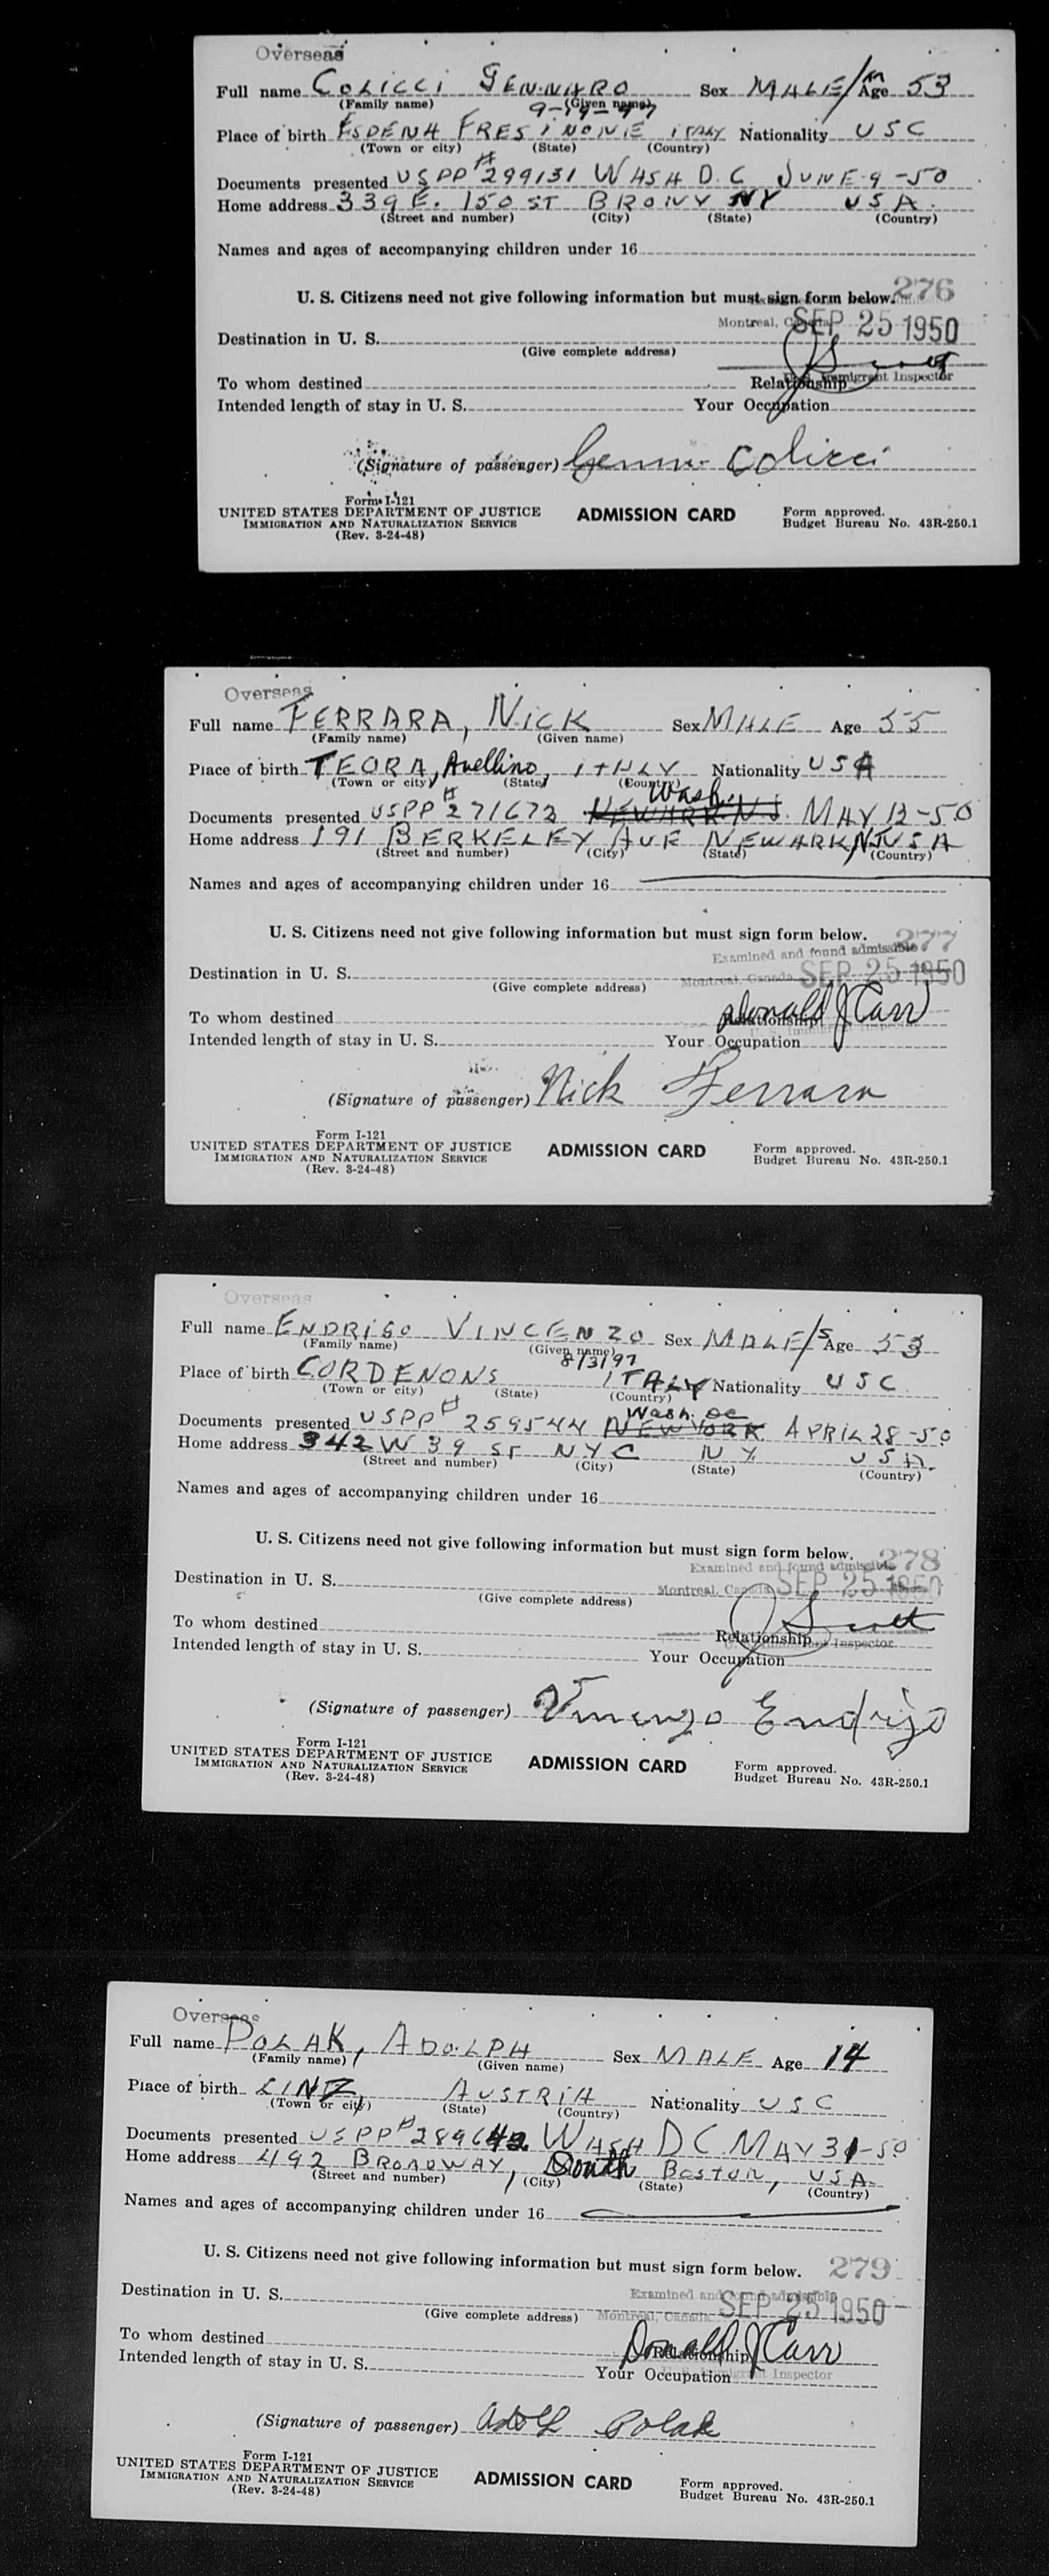 Overseas
Full name COLICCI GENNARO Sex MALE/m Age 53
(Family name) (Given name)
9-19-97
Place of birth ESDENA FRESINONE ITALY Nationality USC
(Town or city) (State) (Country)
Documents presented USPP #299131 WASH D.C JUNE-9-50
Home address 339 E. 150 ST BRONX NY USA.
(Street and number) (City) (State) (Country)
Names and ages of accompanying children under 16
276
U. S. Citizens need not give following information but must sign form below.
Montreal, Canada SEP 25 1950
Destination in U. S.
(Give complete address)
J Scott
U.S. Immigrant Inspector
To whom destined Relationship
Intended length of stay in U. S. Your Occupation
(Signature of passenger) Colicci
Form I-121
UNITED STATES DEPARTMENT OF JUSTICE ADMISSION CARD Form approved.
IMMIGRATION AND NATURALIZATION SERVICE Budget Bureau No. 43R-250.1
(Rev. 3-24-48)
Overseas
Full name FERRARA, NICK Sex MALE Age 55
(Family name) (Given name)
Place of birth TEORA, Avellino, ITALY Nationality USA
(Town or city) (State) (Country)
Wash.
Documents presented USPP #271672 NEWARK NJ. MAY 12-50
Home address 191 BERKELEY AVE NEWARK NJ USA
(Street and number) (City) (State) (Country)
Names and ages of accompanying children under 16
277
U. S. Citizens need not give following information but must sign form below.
Examined and found admissible
Montreal, Canada SEP 25 1950
Destination in U. S.
(Give complete address)
Donald J Carr
To whom destined Relationship
Intended length of stay in U. S. Your Occupation
(Signature of passenger) Nick Ferrara
Form I-121
UNITED STATES DEPARTMENT OF JUSTICE ADMISSION CARD Form approved.
IMMIGRATION AND NATURALIZATION SERVICE Budget Bureau No. 43R-250.1
(Rev. 3-24-48)
Overseas
Full name ENDRIGO VINCENZO Sex MALE/S Age 53
(Family name) (Given name)
8/3/97
Place of birth CORDENONS ITALY Nationality USC
(Town or city) (State) (Country)
Wash. DC
Documents presented USPP # 259544 NEW YORK APRIL 28-50
Home address 342 W 39 ST NYC N Y. USA.
(Street and number) (City) (State) (Country)
Names and ages of accompanying children under 16
278
U. S. Citizens need not give following information but must sign form below.
Examined and found admissible
Montreal, Canada SEP 25 1950
Destination in U. S.
(Give complete address)
J Scott
To whom destined Relationship
U.S. Immigrant Inspector
Intended length of stay in U. S. Your Occupation
(Signature of passenger) Vincenzo Endrigo
Form I-121
UNITED STATES DEPARTMENT OF JUSTICE ADMISSION CARD Form approved.
IMMIGRATION AND NATURALIZATION SERVICE Budget Bureau No. 43R-250.1
(Rev. 3-24-48)
Overseas
Full name POLAK, ADOLPH Sex MALE Age 14
(Family name) (Given name)
Place of birth LINZ, AUSTRIA Nationality USC
(Town or city) (State) (Country)
Documents presented USPP #289642 WASH DC. MAY 31-50
Home address 492 BROADWAY, South Boston, USA.
(Street and number) (City) (State) (Country)
Names and ages of accompanying children under 16
U. S. Citizens need not give following information but must sign form below. 279
Examined and found admissible
Montreal, Canada SEP 25 1950
Destination in U. S.
(Give complete address)
Donald J Carr
To whom destined Relationship
U.S. Immigrant Inspector
Intended length of stay in U. S. Your Occupation
(Signature of passenger) Adolf Polak
Form I-121
UNITED STATES DEPARTMENT OF JUSTICE ADMISSION CARD Form approved.
IMMIGRATION AND NATURALIZATION SERVICE Budget Bureau No. 43R-250.1
(Rev. 3-24-48)